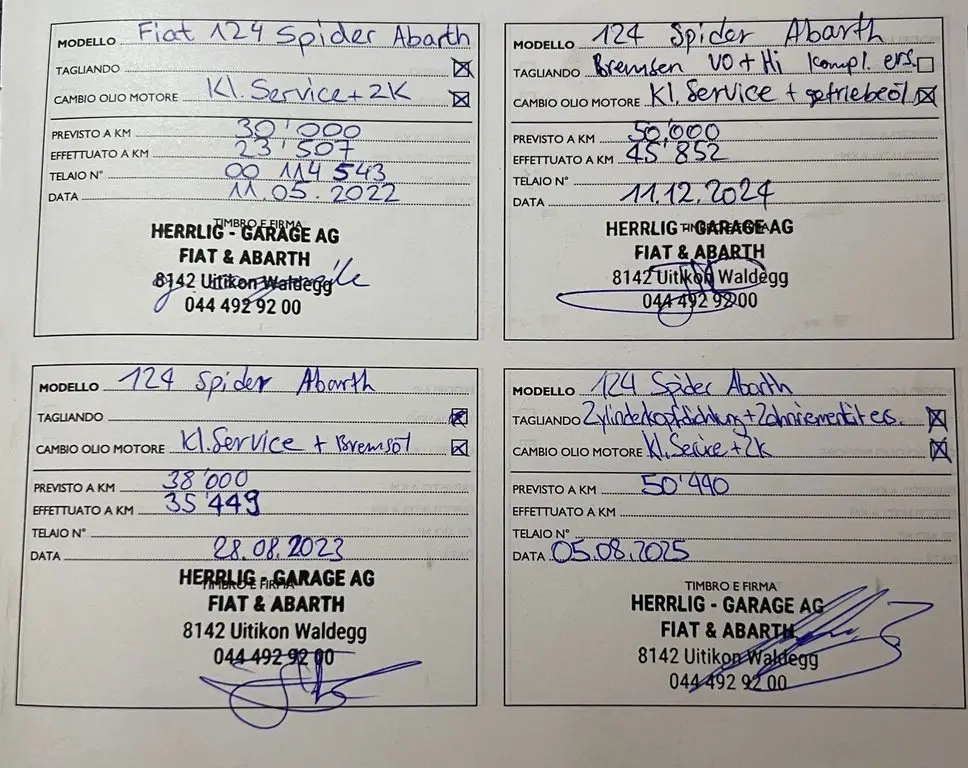 MODELLO Fiat 124 Spider Abarth
TAGLIANDO
CAMBIO OLIO MOTORE Kl. Service + 2K
PREVISTO A KM 30'000
EFFETTUATO A KM 23'507
TELAIO N° 00 114 543
DATA 11.05.2022
TIMBRO E FIRMA
HERRLIG - GARAGE AG
FIAT & ABARTH
8142 Uitikon Waldegg
044 492 92 00
MODELLO 124 Spider Abarth
TAGLIANDO Bremsen VO + Hi kompl. ers.
CAMBIO OLIO MOTORE Kl. Service + getriebeöl
PREVISTO A KM 50'000
EFFETTUATO A KM 45'852
TELAIO N°
DATA 11.12.2024
TIMBRO E FIRMA
HERRLIG - GARAGE AG
FIAT & ABARTH
8142 Uitikon Waldegg
044 492 92 00
MODELLO 124 Spider Abarth
TAGLIANDO
CAMBIO OLIO MOTORE Kl. Service + Bremsöl
PREVISTO A KM 38'000
EFFETTUATO A KM 35'449
TELAIO N°
DATA 28.08.2023
TIMBRO E FIRMA
HERRLIG - GARAGE AG
FIAT & ABARTH
8142 Uitikon Waldegg
044 492 92 00
MODELLO 124 Spider Abarth
TAGLIANDO Zylinderkopfdichtung + ers.
CAMBIO OLIO MOTORE Kl. Service + 2K
PREVISTO A KM 50'440
EFFETTUATO A KM
TELAIO N°
DATA 05.08.2025
TIMBRO E FIRMA
HERRLIG - GARAGE AG
FIAT & ABARTH
8142 Uitikon Waldegg
044 492 92 00